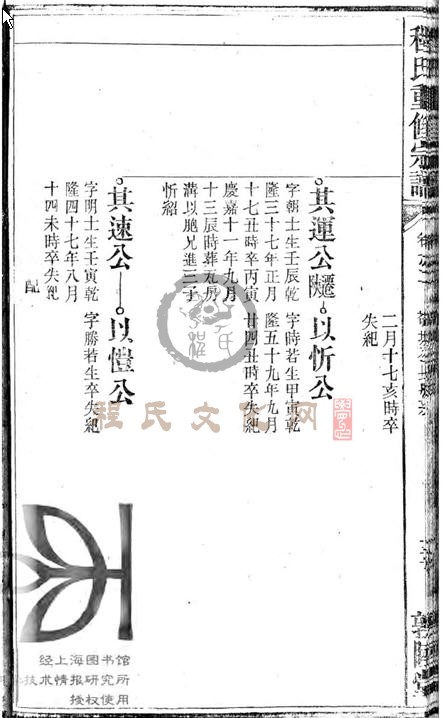 程氏重修宗譜
二月十七亥時卒
失紀
其運公
字朝士生壬辰乾
隆三十七年正月
十七丑時卒丙寅
慶嘉十一年九月
十三辰時葬九房
溝以胞兄進三子
忻紹
以忻公
字時若生甲寅乾
隆五十九年九月
廿四丑時卒失紀
其速公
字明士生壬寅乾
隆四十七年八月
十四未時卒失紀
配
以愷公
字勝若生卒失紀
敦睦堂
程氏文化网
经上海图书馆
技术情报研究所
授权使用